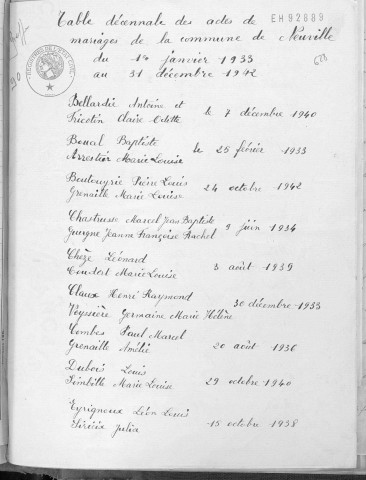 Table décennale des actes de EH92889
mariages de la commune de Neuville
du 1er janvier 1933
au 31 décembre 1942
Bellardie Antoine et
Tricotin Claire Odette le 7 décembre 1940
Boual Baptiste
Arrestier Marie Louise le 25 février 1933
Boutouyrie Pierre Louis
Grenaille Marie Louise 24 octobre 1942
Chastrusse Marcel Jean Baptiste
Guergne Jeanne Françoise Rachel 9 juin 1934
Chèze Léonard
Coudert Marie Louise 3 août 1939
Claux Henri Raymond
Veyssière Germaine Marie Hélène 30 décembre 1933
Combes Paul Marcel
Grenaille Amélie 20 août 1936
Dubois Louis
Simbille Marie Louise 29 octobre 1940
Eyrignoux Léon Louis
Sirieix Julia 15 octobre 1938